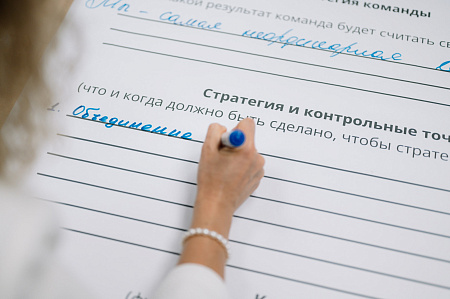 стратегия команды
какой результат команда будет считать св
Мы - самая неординарная
Стратегия и контрольные точ
(что и когда должно быть сделано, чтобы страте
1. Объединение